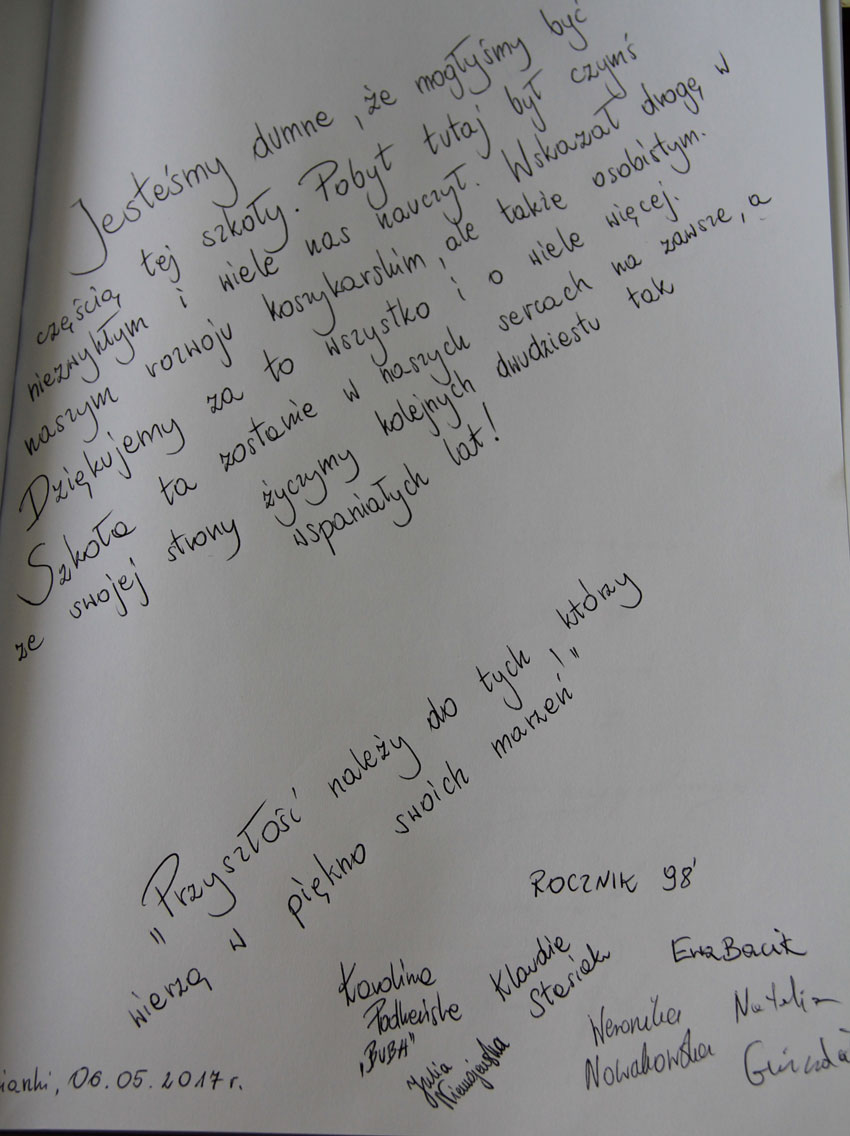 Jesteśmy dumne, że mogłyśmy być
częścią tej szkoły. Pobyt tutaj był czymś
niezwykłym i wiele nas nauczył. Wskazał drogę w
naszym rozwoju koszykarskim, ale także osobistym.
Dziękujemy za to wszystko i o wiele więcej.
Szkoła ta zostanie w naszych sercach na zawsze, a
ze swojej strony życzymy kolejnych dwudziestu tak
wspaniałych lat!
„Przyszłość należy do tych, którzy
wierzą w piękno swoich marzeń!"
ROCZNIK 98'
Karolina
„BUBA"
Klaudia
Stasiak
Julia
Ewa Bacik
Weronika
Nowakowska
Natalia
06.05.2017 r.